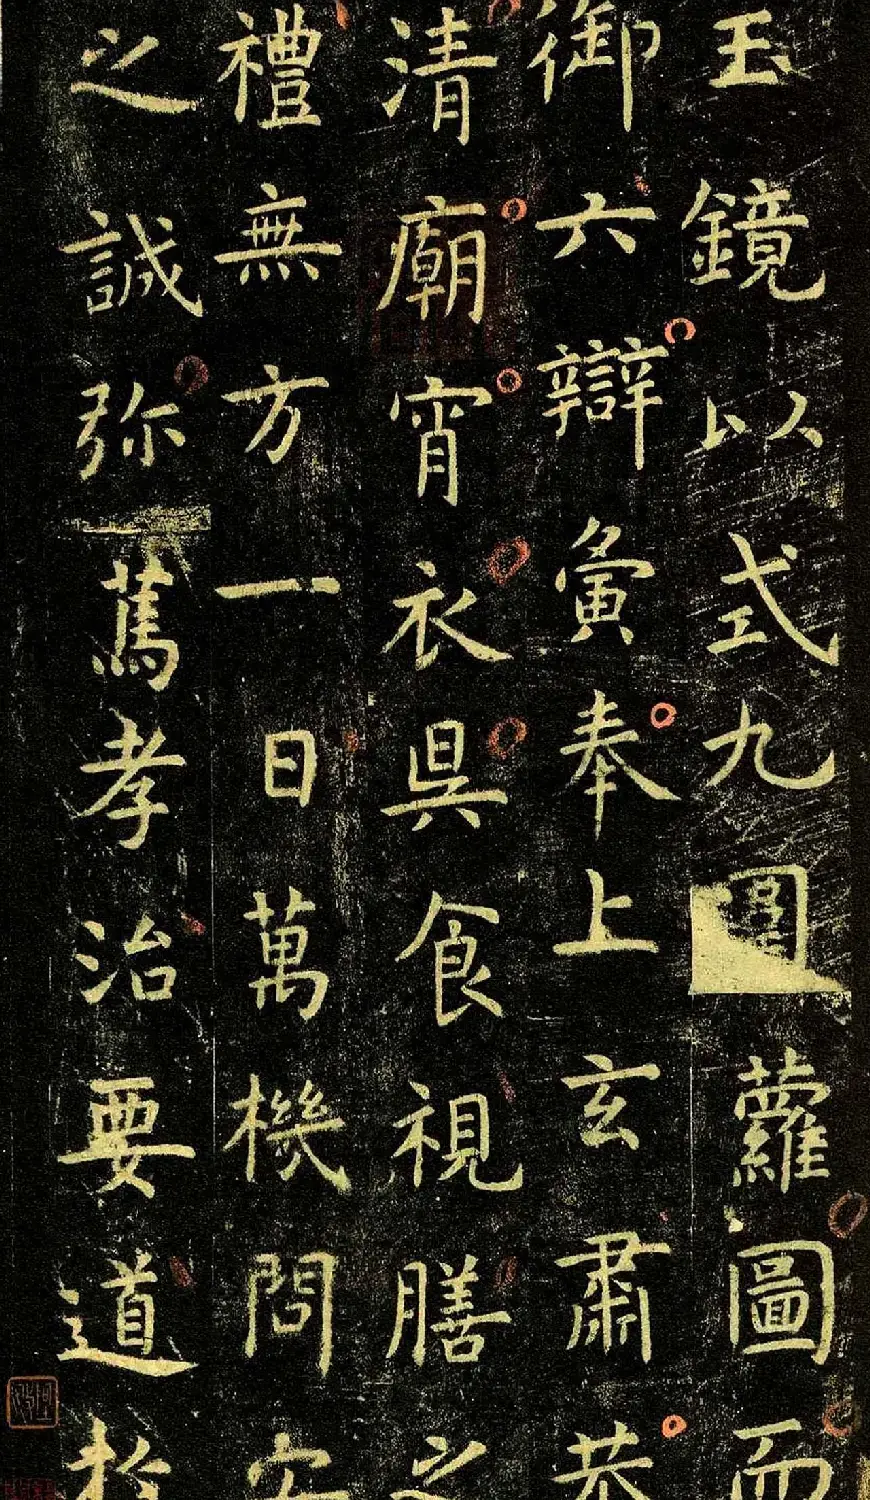 玉鏡以式九圍蘿圖而
御六辯夤奉上玄肅恭
清廟宵衣昃食視膳之
禮無方一日萬機問安
之誠弥篤孝治要道於